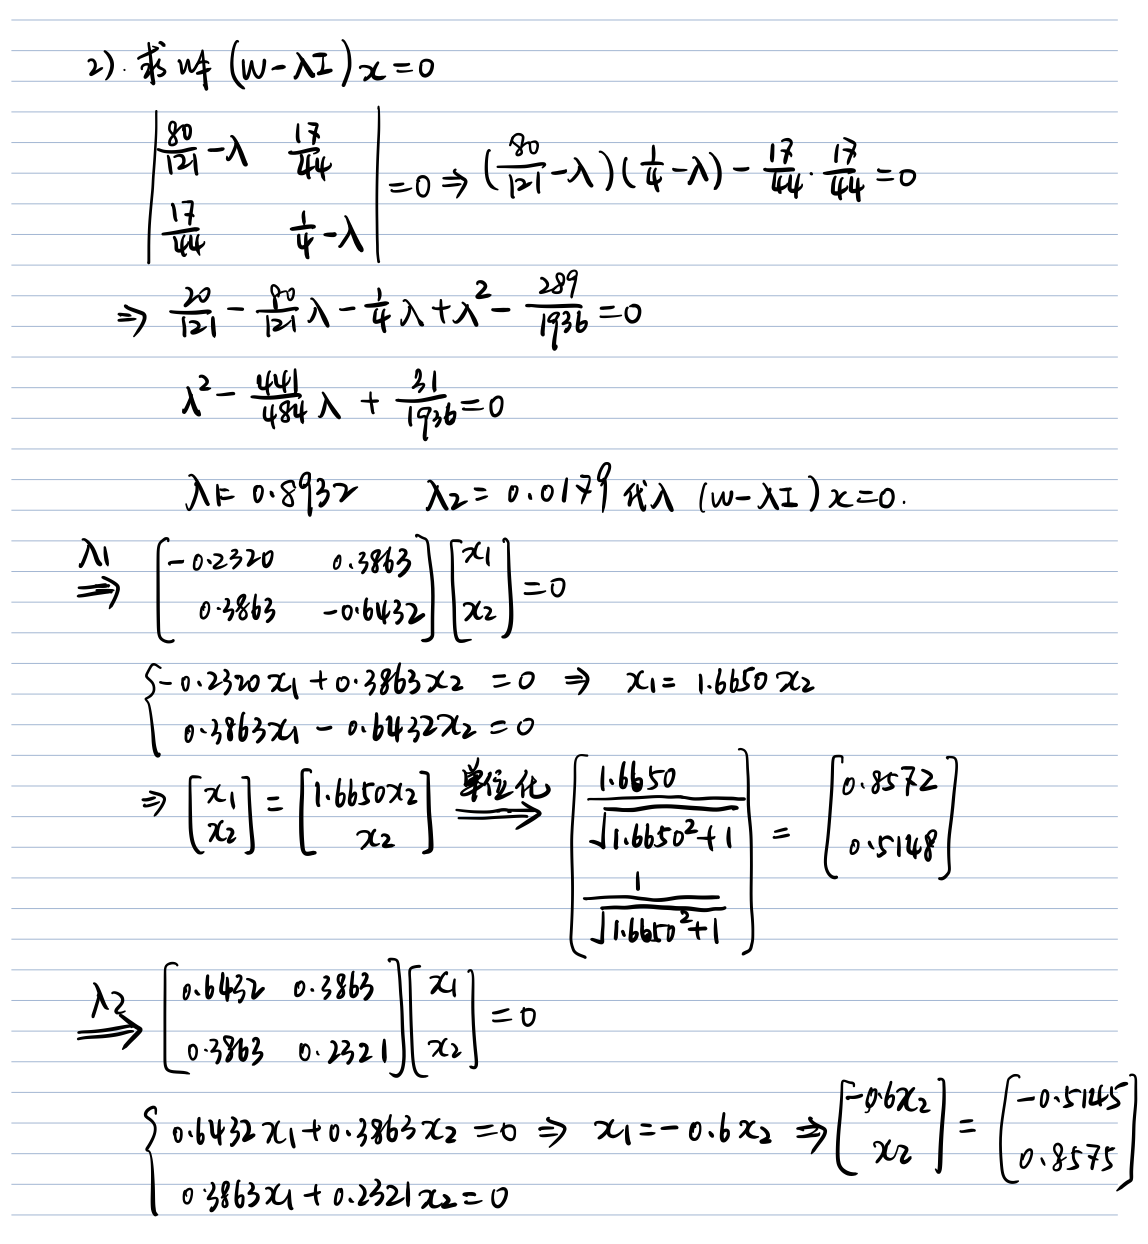 2). 求解 (W-λI)x=0
| 80/121-λ 17/44 | 17/44 1/4-λ | =0 ⇒ (80/121-λ)(1/4-λ)-17/44·17/44=0
⇒ 20/121-80/121λ-1/4λ+λ²-289/1936=0
λ²-441/484λ+31/1936=0
λ1=0.8932 λ2=0.0179 代入 (W-λI)x=0.
λ1⇒ [-0.2320 0.3863; 0.3863 -0.6432][x1; x2]=0
{-0.2320x1+0.3863x2=0 ⇒ x1=1.6650x2
0.3863x1-0.6432x2=0
⇒ [x1; x2]=[1.6650x2; x2] 单位化⇒ [1.6650/√(1.6650²+1); 1/√(1.6650²+1)] = [0.8572; 0.5148]
λ2⇒ [0.6432 0.3863; 0.3863 0.2321][x1; x2]=0
{0.6432x1+0.3863x2=0 ⇒ x1=-0.6x2 ⇒ [-0.6x2; x2] = [-0.5145; 0.8575]
0.3863x1+0.2321x2=0